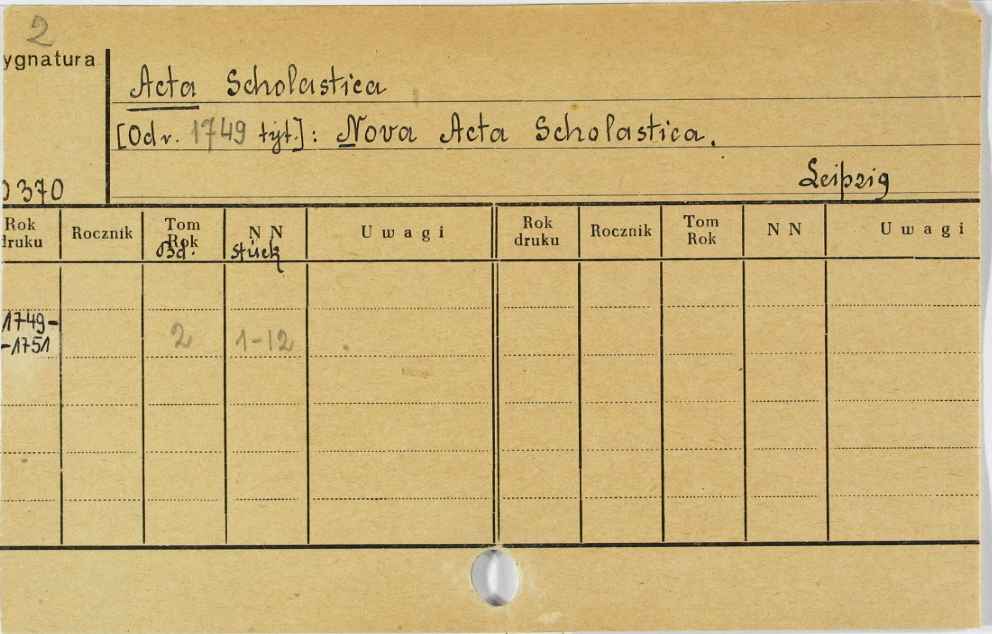 2
ygnatura
Acta Scholastica
[Od r. 1749 tyt.]: Nova Acta Scholastica.
Leipzig
0370
Rok druku Rocznik Tom Rok Bd. NN stück Uwagi Rok druku Rocznik Tom Rok NN Uwagi
1749- 2 1-12
-1751